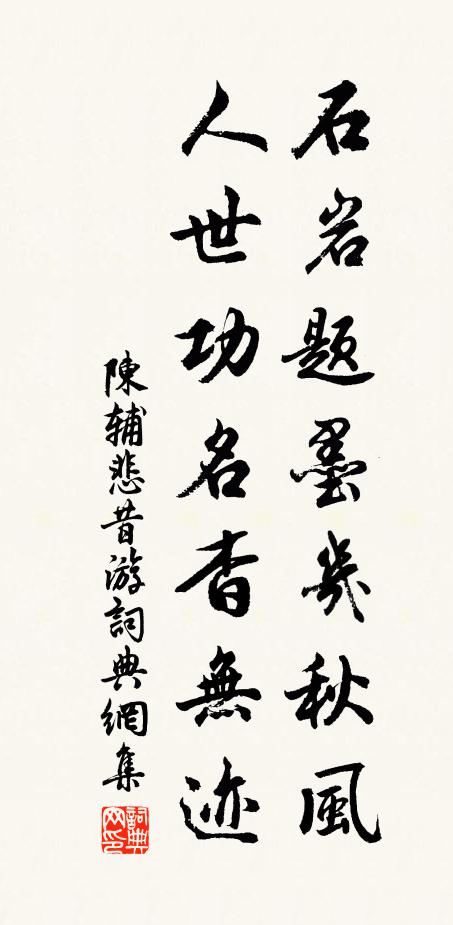 石岩題墨幾秋風
人世功名杳無迹
陳輔悲昔游詞典網集
詞典网印